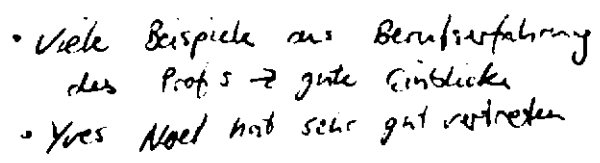 • Viele Beispiele aus Berufserfahrung
des Prof s → gute Einblicke
• Yves Noel hat sehr gut vertreten